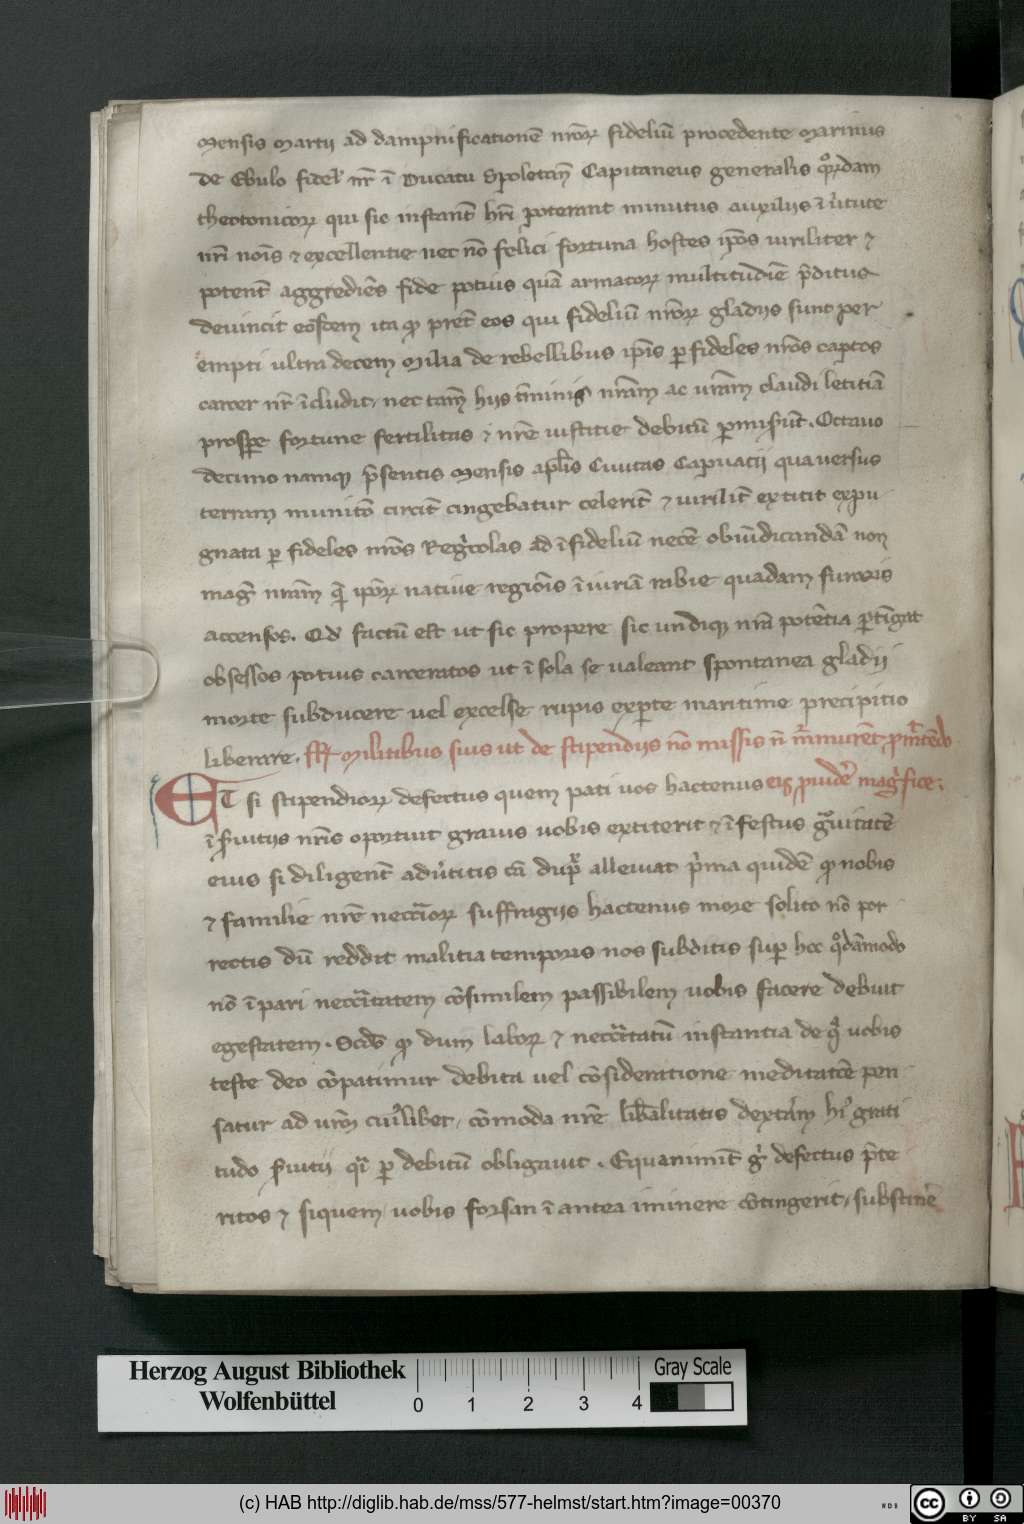 Mensis Martij ad dampnificationē nr̄oꝝ fideliū procedente Marinus
de Ebulo fidel' nr̄ ī Ducatu Spoletan̄ Capitaneus generalis qͦꝝdam
theotonicoꝝ qui sic instant̄ hr̄i poterant minutus auxilijs ī v̓tute
nr̄i nōis ⁊ excellentie nec nō felici fortuna hostes ip̄os viriliter ⁊
potent̄ aggrediēs fide potius quā armatoꝝ multitudiē p̄ditus
deuincit eosdem ita ꝙ pret̄ eos qui fideliū nr̄oꝝ gladijs sunt per
empti ultra decem Milia de rebellibus ip̄is ꝑ fideles nr̄os captos
carcer nr̄ īcludit, nec tam̄ hijs t̄minis nr̄am ac vr̄am claudi letitiā
prosꝑe fortune fertilitas ⁊ nr̄e iustitie debitū ꝑmiserūt. Octauo
decimo namqꝫ p̄sentis Mensis apl̄is Ciuitas Capuacij qua versus
terram munitō circit̄ cingebatur celerit̄ ⁊ virilit̄ extitit expu
gnata ꝑ fideles nr̄os Regͥcolas ad īfideliū necē obiudicandā non
maḡ nr̄am q̄ ip̄oꝝ natiue regiōis īiuriā rabie quadam furoris
accensos. Qd̓ factū est ut sic propere sic undiqꝫ nr̄a potētia ꝑtīgat
obsessos potius carceratos ut ī sola se ualeant spontanea gladij
morte subducere uel excelse rupis exꝑte maritime precipitio
liberare. ffr̄ Militibus suis ut de stipendijs nō missis n̄ mͬmurēt, ꝓmͥtēdo
ET si stipendioꝝ defectus quem pati uos hactenus eis ꝓuidē magͥfice;
ī s̓uitijs nr̄is oportuit grauis uobis extiterit ⁊ īfestus gͣuitatē
eius si diligent̄ adū̓titis cā dupͬ alleuiat pͥma quidē ꝙ nobis
⁊ familie nr̄e neccͣrioꝝ suffragijs hactenus more solito nō por
rectis dū reddit malitia temporis nos subditis suꝑ hoc qͦdāmodo
nō īpari neccͣitatem cōsimilem passibilem uobis facere debuit
egestatem. Scdō ꝙ dum laboꝝ ⁊ neccͣitatū instantia de qͣ uobis
teste deo cōpatimur debita uel cōsideratione meditatōe pen
satur ad vr̄m cuiͥlibet, cōmoda nr̄e lib̄alitatis dextām hiͥ grati
tudo s̓uitij qͣi ꝑ debitū obligauit. Equanimit̄ gͥ defectus p̄te
ritos ⁊ siquem uobis forsan ī antea iminere cōtingerit, substinē
Herzog August Bibliothek
Wolfenbüttel
0 1 2 3 4
Gray Scale
(c) HAB http://diglib.hab.de/mss/577-helmst/start.htm?image=00370
WDB
cc BY SA